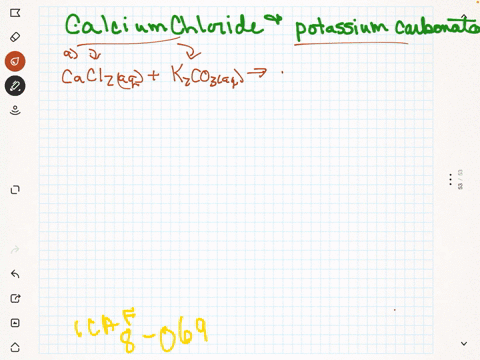 Calcium Chloride & potassium carbonate
a)
CaCl2(aq) + K2CO3(aq) →
ICA F
8-069
53 / 53